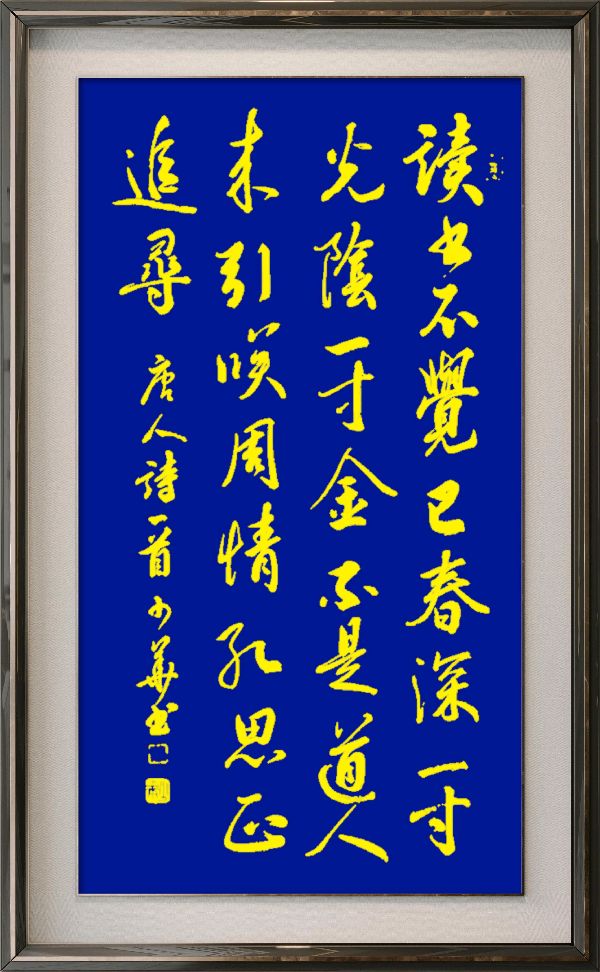 读书不覺已春深一寸
光陰一寸金不是道人
来引咲周情孔思正
追尋 唐人詩一首 少華书